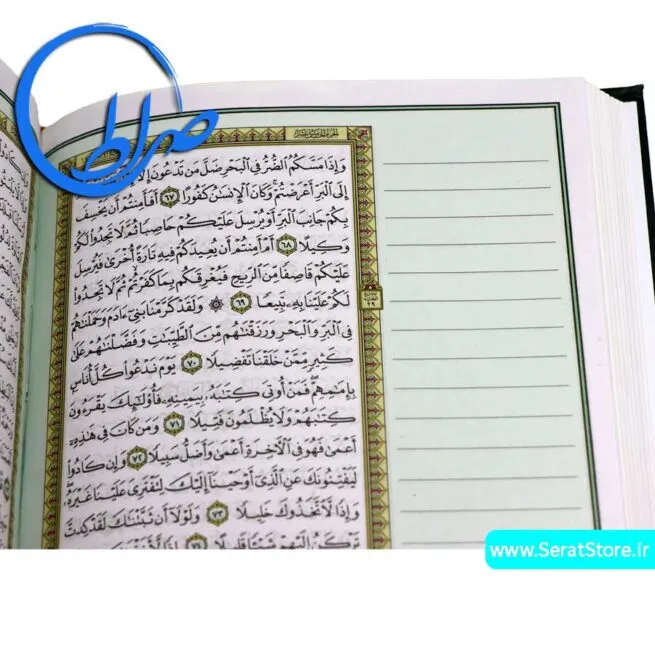 صراط
وَإِذَا مَسَّكُمُ الضُّرُّ فِي الْبَحْرِ ضَلَّ مَن تَدْعُونَ إِلَّا
إِلَى الْبَرِّ أَعْرَضْتُمْ وَكَانَ الْإِنسَانُ كَفُورًا ٦٧ أَفَأَمِنتُمْ أَن يَخْسِفَ
بِكُمْ جَانِبَ الْبَرِّ أَوْ يُرْسِلَ عَلَيْكُمْ حَاصِبًا ثُمَّ لَا تَجِدُوا لَكُمْ
وَكِيلًا ٦٨ أَمْ أَمِنتُمْ أَن يُعِيدَكُمْ فِيهِ تَارَةً أُخْرَىٰ فَيُرْسِلَ
عَلَيْكُمْ قَاصِفًا مِّنَ الرِّيحِ فَيُغْرِقَكُم بِمَا كَفَرْتُمْ ثُمَّ لَا تَجِدُوا
لَكُمْ عَلَيْنَا بِهِ تَبِيعًا ٦٩ ۞ وَلَقَدْ كَرَّمْنَا بَنِي آدَمَ وَحَمَلْنَاهُمْ
فِي الْبَرِّ وَالْبَحْرِ وَرَزَقْنَاهُم مِّنَ الطَّيِّبَاتِ وَفَضَّلْنَاهُمْ عَلَىٰ
كَثِيرٍ مِّمَّنْ خَلَقْنَا تَفْضِيلًا ٧٠ يَوْمَ نَدْعُوا كُلَّ أُنَاسٍ
بِإِمَامِهِمْ فَمَنْ أُوتِيَ كِتَابَهُ بِيَمِينِهِ فَأُولَٰئِكَ يَقْرَءُونَ
كِتَابَهُمْ وَلَا يُظْلَمُونَ فَتِيلًا ٧١ وَمَن كَانَ فِي هَٰذِهِ
أَعْمَىٰ فَهُوَ فِي الْآخِرَةِ أَعْمَىٰ وَأَضَلُّ سَبِيلًا ٧٢ وَإِن كَادُوا
لَيَفْتِنُونَكَ عَنِ الَّذِي أَوْحَيْنَا إِلَيْكَ لِتَفْتَرِيَ عَلَيْنَا غَيْرَهُ
وَإِذًا لَّاتَّخَذُوكَ خَلِيلًا ٧٣ وَلَوْلَا أَن ثَبَّتْنَاكَ لَقَدْ كِدتَّ
تَرْكَنُ إِلَيْهِمْ شَيْئًا قَلِيلًا ٧٤ إِذًا
www.SeratStore.ir